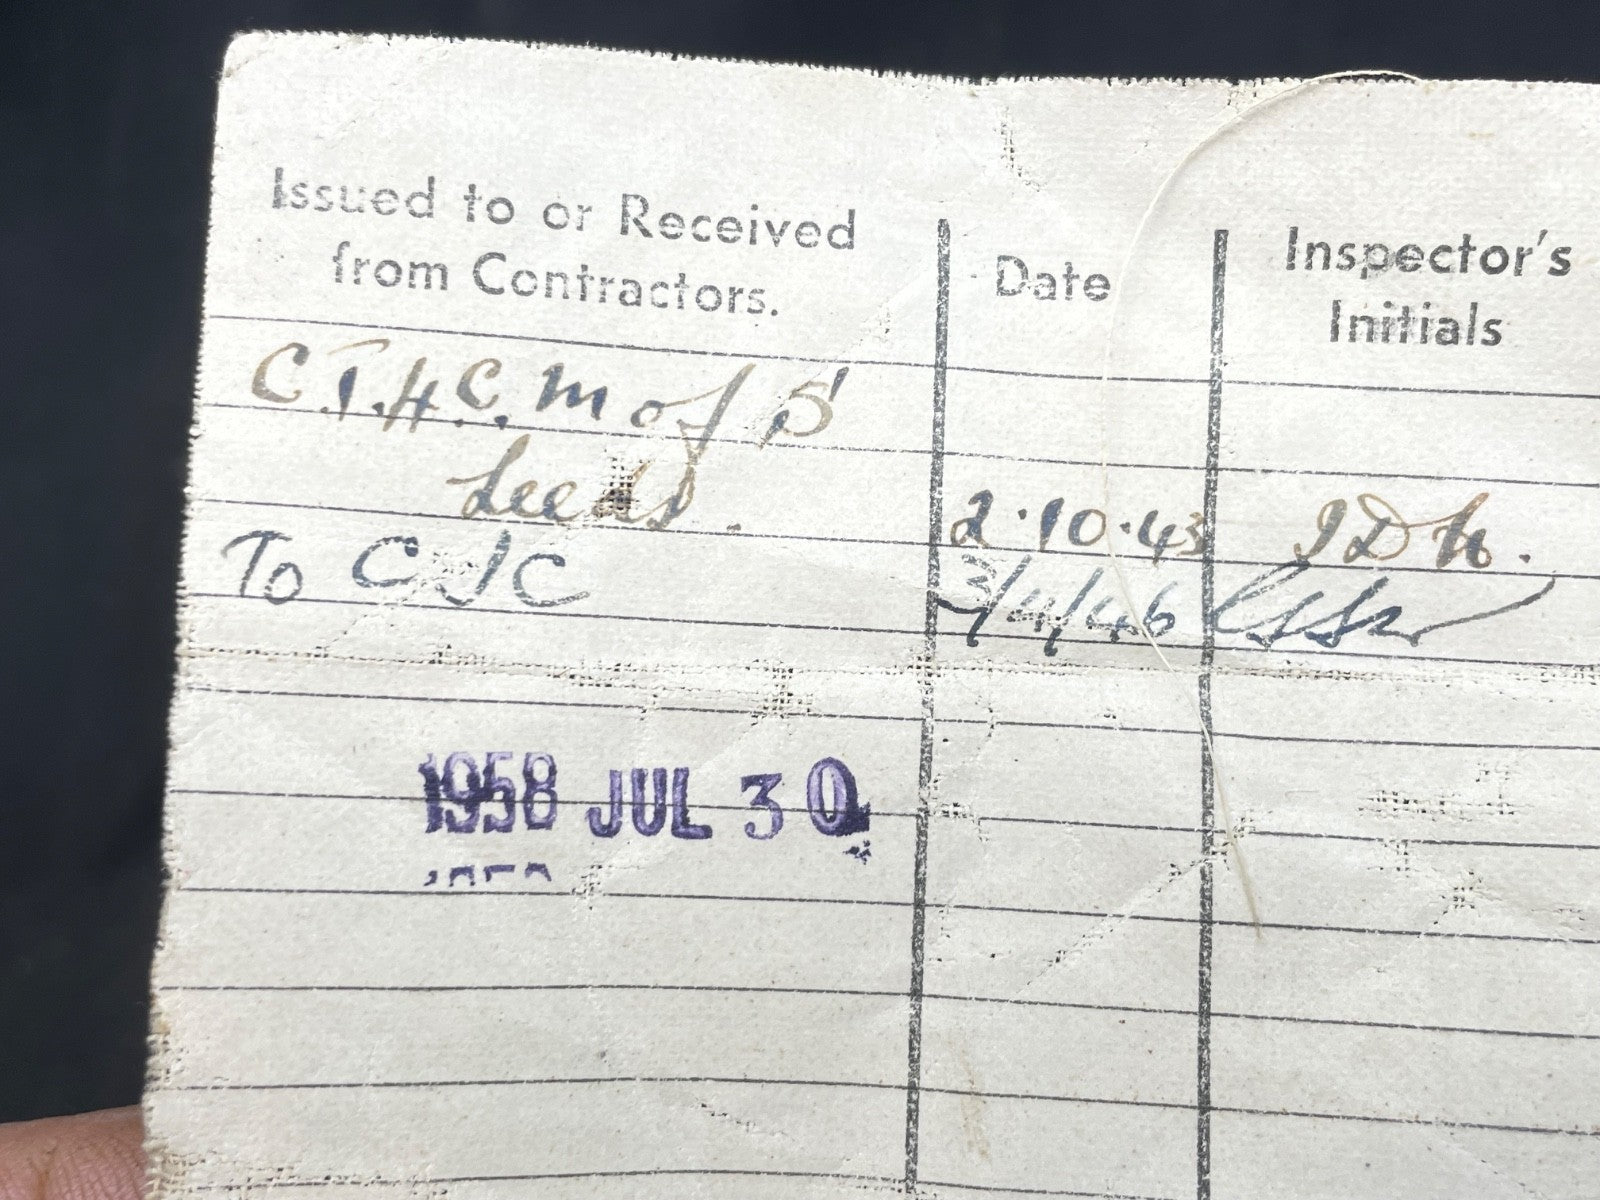 Issued to or Received
from Contractors.
Date
Inspector's
Initials
C.T.H.C. M of S
Leeds.
2.10.43
To CJC
3/4/46
1958 JUL 30